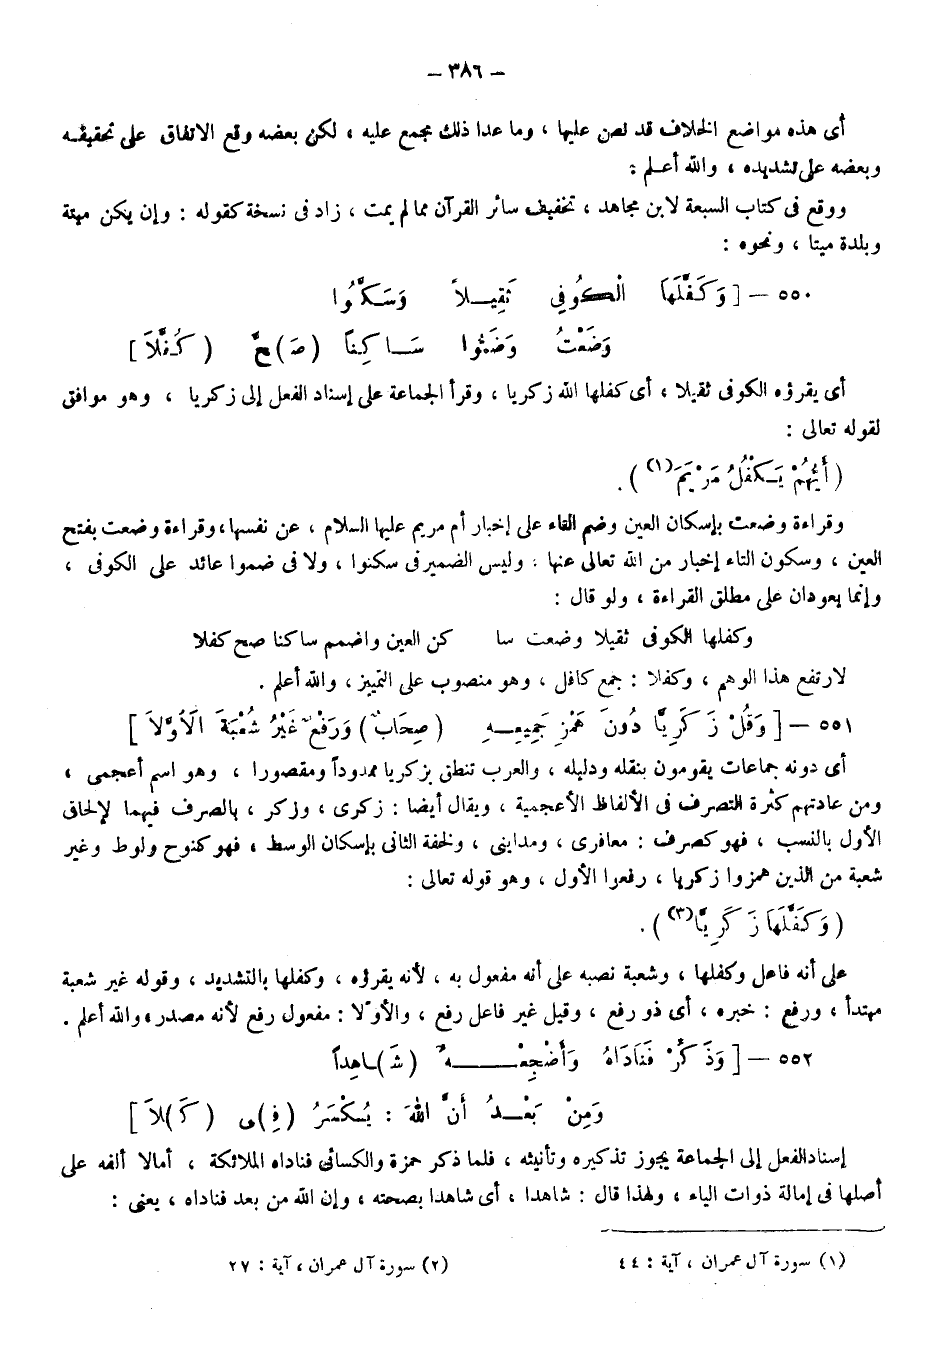 — ٣٨٦ —
أى هذه مواضع الخلاف قد نص عليها ، وما عدا ذلك مجمع عليه ، لكن بعضه وقع الاتفاق على تحقيقه
وبعضه على تشديده ، والله أعلم :
ووقع فى كتاب السبعة لابن مجاهد ، تخفيف سائر القرآن مما لم يمت ، زاد فى نسخة كقوله : وإن يكن ميتة
وبلدة ميتا ، ونحوه :
٥٥٠ — [ وَكَفَّلَهَا الْكُوفِى ثَقِيلاً وَسَكَّنُوا
وَضَعْتُ وَضَمُّوا سَاكِناً (صَ)حَّ (كُفَّلاَ) ]
أى يقرؤه الكوفى ثقيلا ، أى كفلها الله زكريا ، وقرأ الجماعة على إسناد الفعل إلى زكريا ، وهو موافق
لقوله تعالى :
( أَيُّهُمْ يَكْفُلُ مَرْيَمَ (١) ) .
وقراءة وضعت بإسكان العين وضم التاء على إخبار أم مريم عليها السلام ، عن نفسها ، وقراءة وضعت بفتح
العين ، وسكون التاء إخبار من الله تعالى عنها : وليس الضمير فى سكنوا ، ولا فى ضموا عائد على الكوفى ،
وإنما يعودان على مطلق القراءة ، ولو قال :
وكفلها الكوفى ثقيلا وضعت سا كن العين واضمم ساكنا صح كفلا
لارتفع هذا الوهم ، وكفلا : جمع كافل ، وهو منصوب على التمييز ، والله أعلم .
٥٥١ — [ وَقُلْ زَكَرِيَّا دُونَ هَمْزِ جَمِيعِهِ (صِحَابٌ) وَرَفْعٌ غَيْرُ شُعْبَةَ الْأَوَّلاَ ]
أى دونه جماعات يقومون بنقله ودليله ، والعرب تنطق بزكريا ممدوداً ومقصورا ، وهو اسم أعجمى ،
ومن عادتهم كثرة التصرف فى الألفاظ الأعجمية ، ويقال أيضا : زكرى ، وزكر ، بالصرف فيهما لإلحاق
الأول بالنسب ، فهو كصرف : معافرى ، ومداينى ، ولخفة الثانى بإسكان الوسط ، فهو كنوح ولوط وغير
شعبة من الذين همزوا زكريا ، رفعوا الأول ، وهو قوله تعالى :
( وَكَفَّلَهَا زَكَرِيَّا (٣) ) .
على أنه فاعل وكفلها ، وشعبة نصبه على أنه مفعول به ، لأنه يقرؤه ، وكفلها بالتشديد ، وقوله غير شعبة
مبتدأ ، ورفع : خبره ، أى ذو رفع ، وقيل غير فاعل رفع ، والأوّلا : مفعول رفع لأنه مصدر ، والله أعلم .
٥٥٢ — [ وَذَكِّرْ فَنَادَاهُ وَأَضْجِعْهُ (شَ)اهِداً
وَمِنْ بَعْدُ أَنَّ اللهَ : يُكْسَرُ (فِ)ى (كَ)لاَ ]
إسناد الفعل إلى الجماعة يجوز تذكيره وتأنيثه ، فلما ذكر حمزة والكسائى فناداه الملائكة ، أمالا ألفه على
أصلها فى إمالة ذوات الياء ، ولهذا قال : شاهدا ، أى شاهدا بصحته ، وإن الله من بعد فناداه ، يعنى :
(١) سورة آل عمران ، آية : ٤٤
(٢) سورة آل عمران ، آية : ٢٧